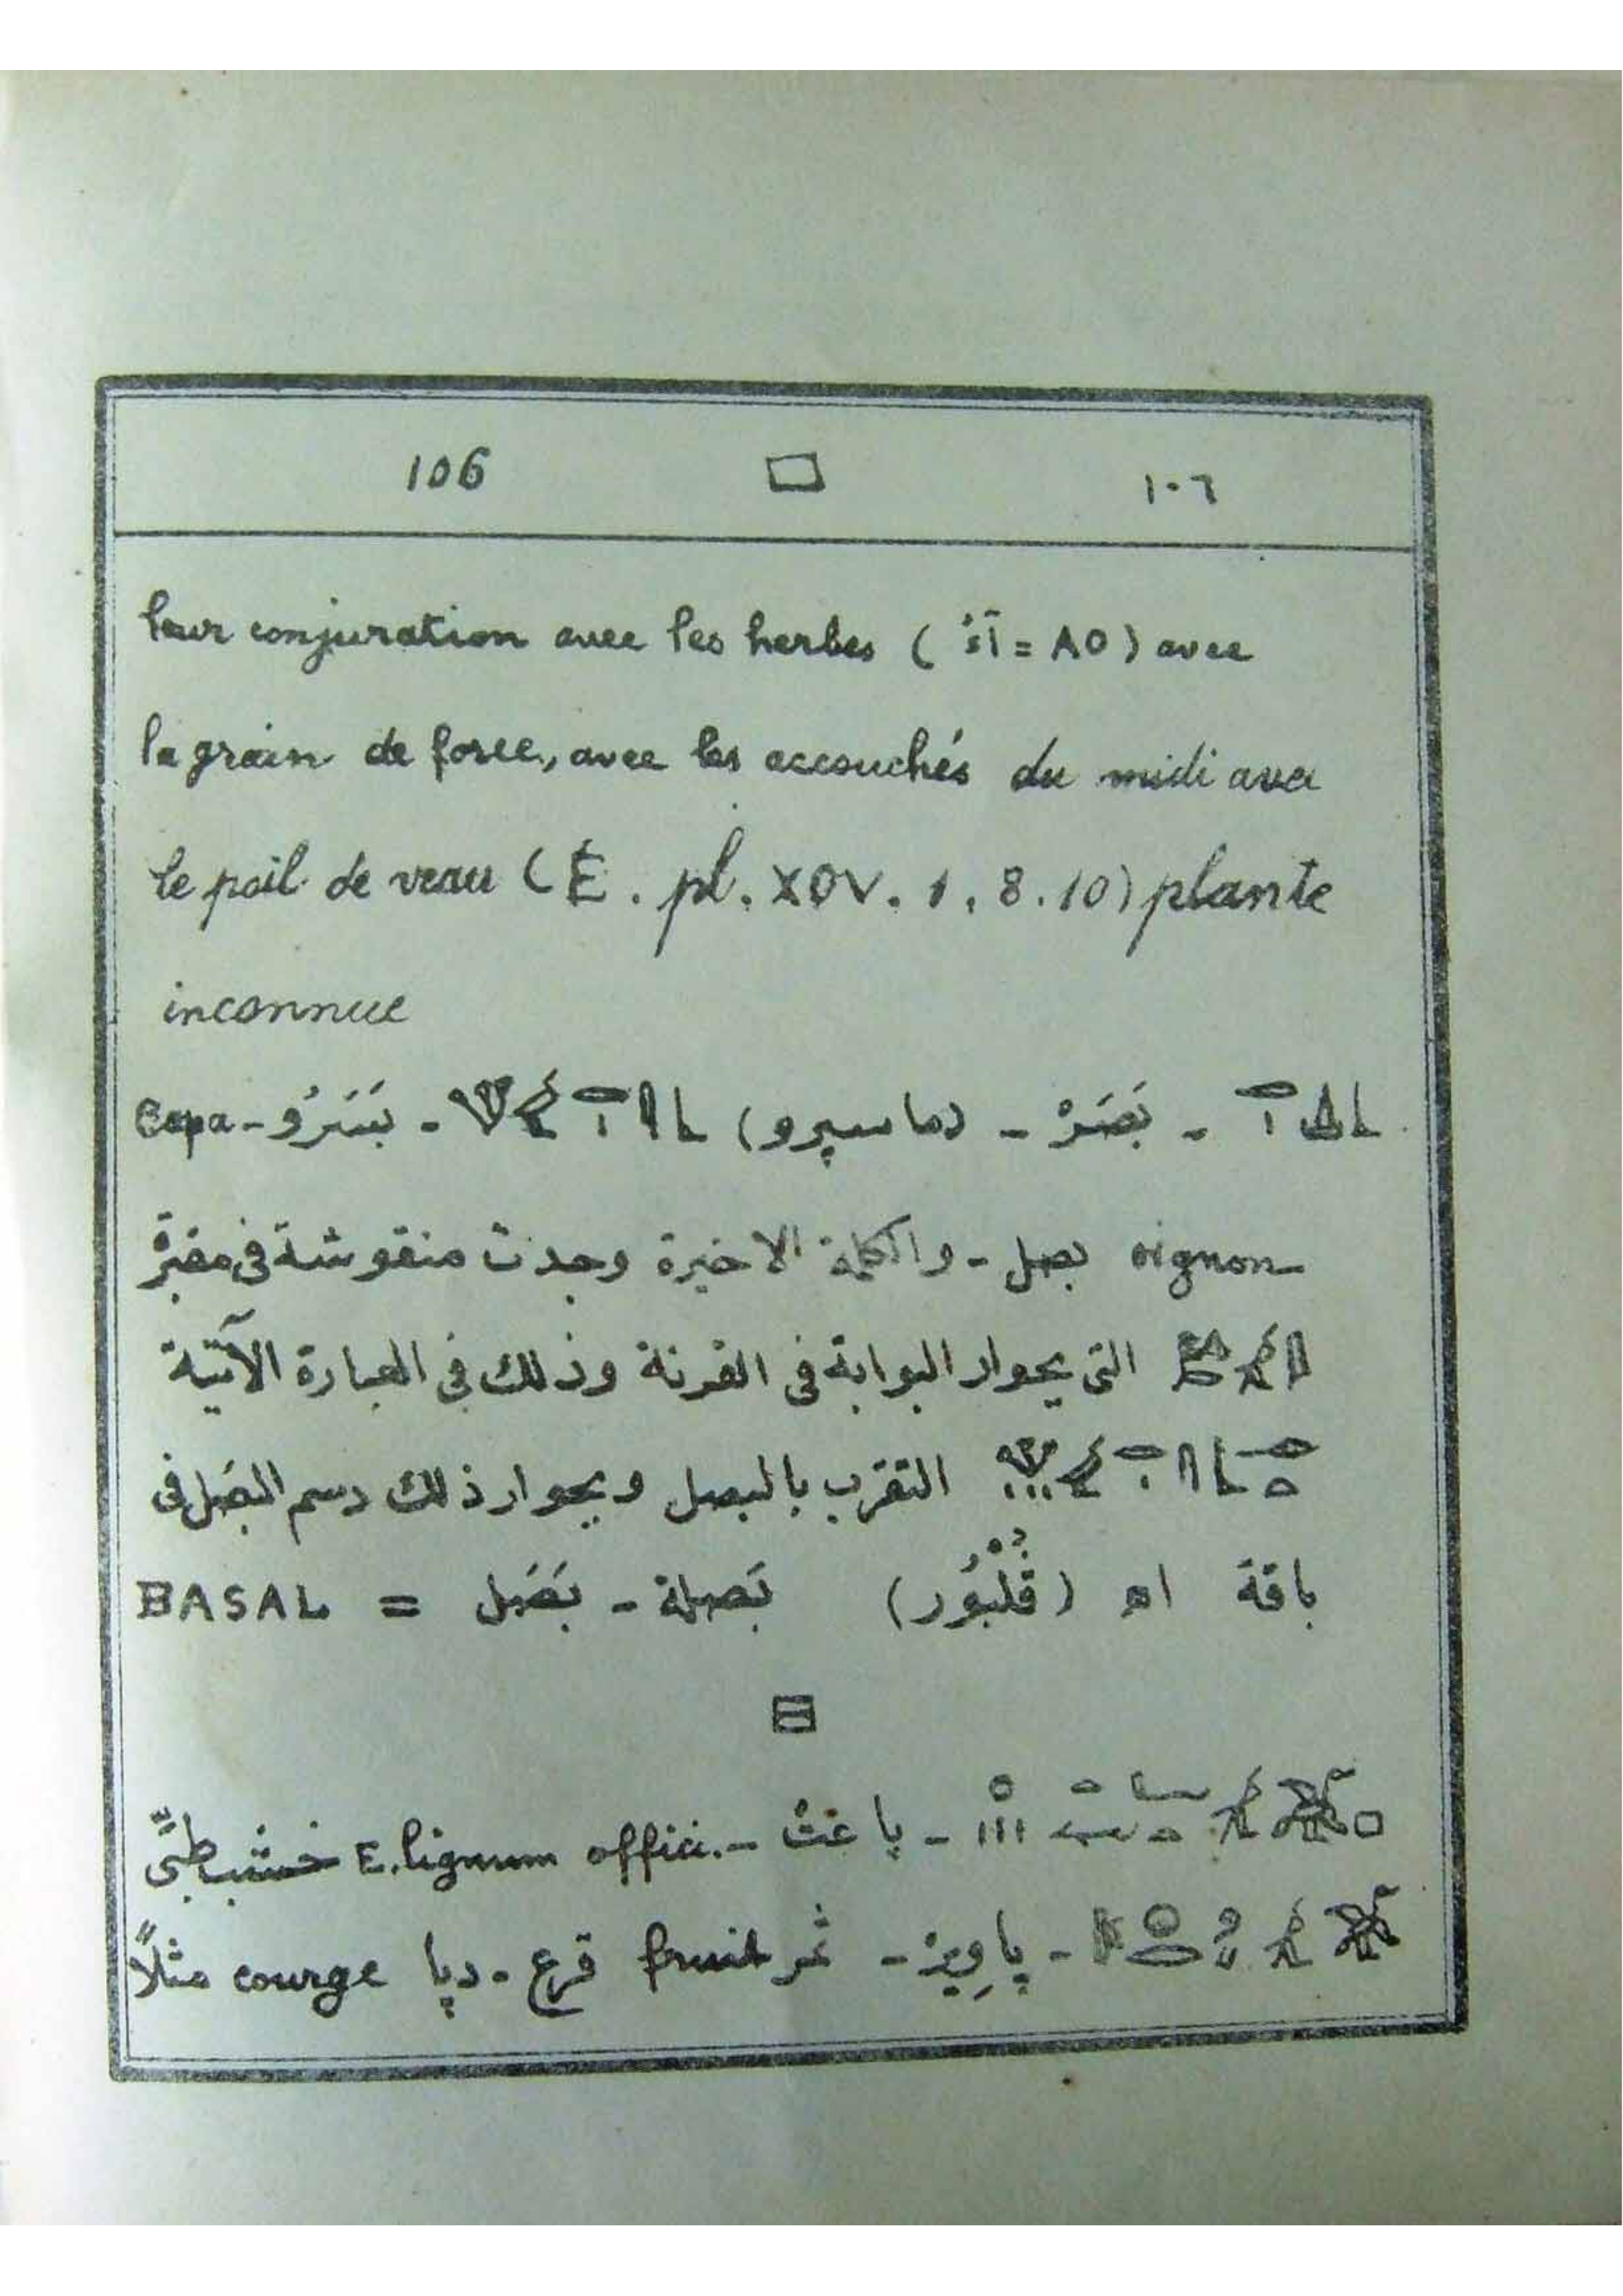 106 □ ١٠٦
leur conjuration avec les herbes (آءُ = AO) avec
la grain de force, avec les accouchés du midi avec
le poil de veau (E. pl. XCV. 1, 8. 10) plante
inconnue
- بَصَرْ - (ماسپرو) - بَسَرُو - Cepa
oignon بصل - والكلمة الاخيرة وجدت منقوشة فى مقبرة
التى بجوار البوابة فى القرنة وذلك فى العبارة الآتية
التقرب بالبصل وبجوار ذلك رسم البصل فى
باقة اه (ڤُلْبُور) بَصلة - بَصَل = BASAL
- باغت - E. lignum offici. خشب طبىّ
- پاوِيزْ - ثمر fruit قرع - دبا courge مثلاً